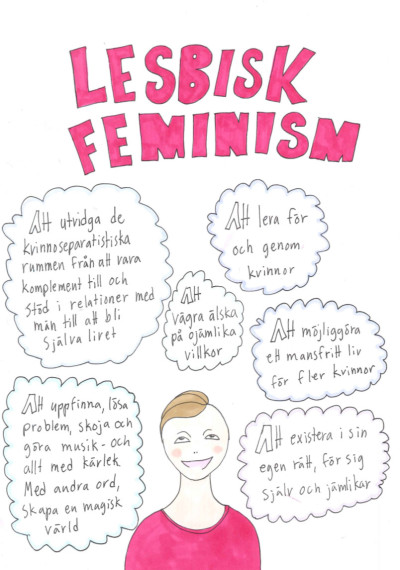 LESBISK
FEMINISM
Att utvidga de
kvinnoseparatistiska
rummen från att vara
komplement till och
stöd i relationer med
män till att bli
själva livet
Att lera för
och genom
kvinnor
Att
vägra älska
på ojämlika
villkor
Att möjliggöra
ett mansfritt liv
för fler kvinnor
Att uppfinna, lösa
problem, skoja och
göra musik - och
allt med kärlek
Med andra ord,
skapa en magisk
värld
Att existera i sin
egen rätt, för sig
själv och jämlikar